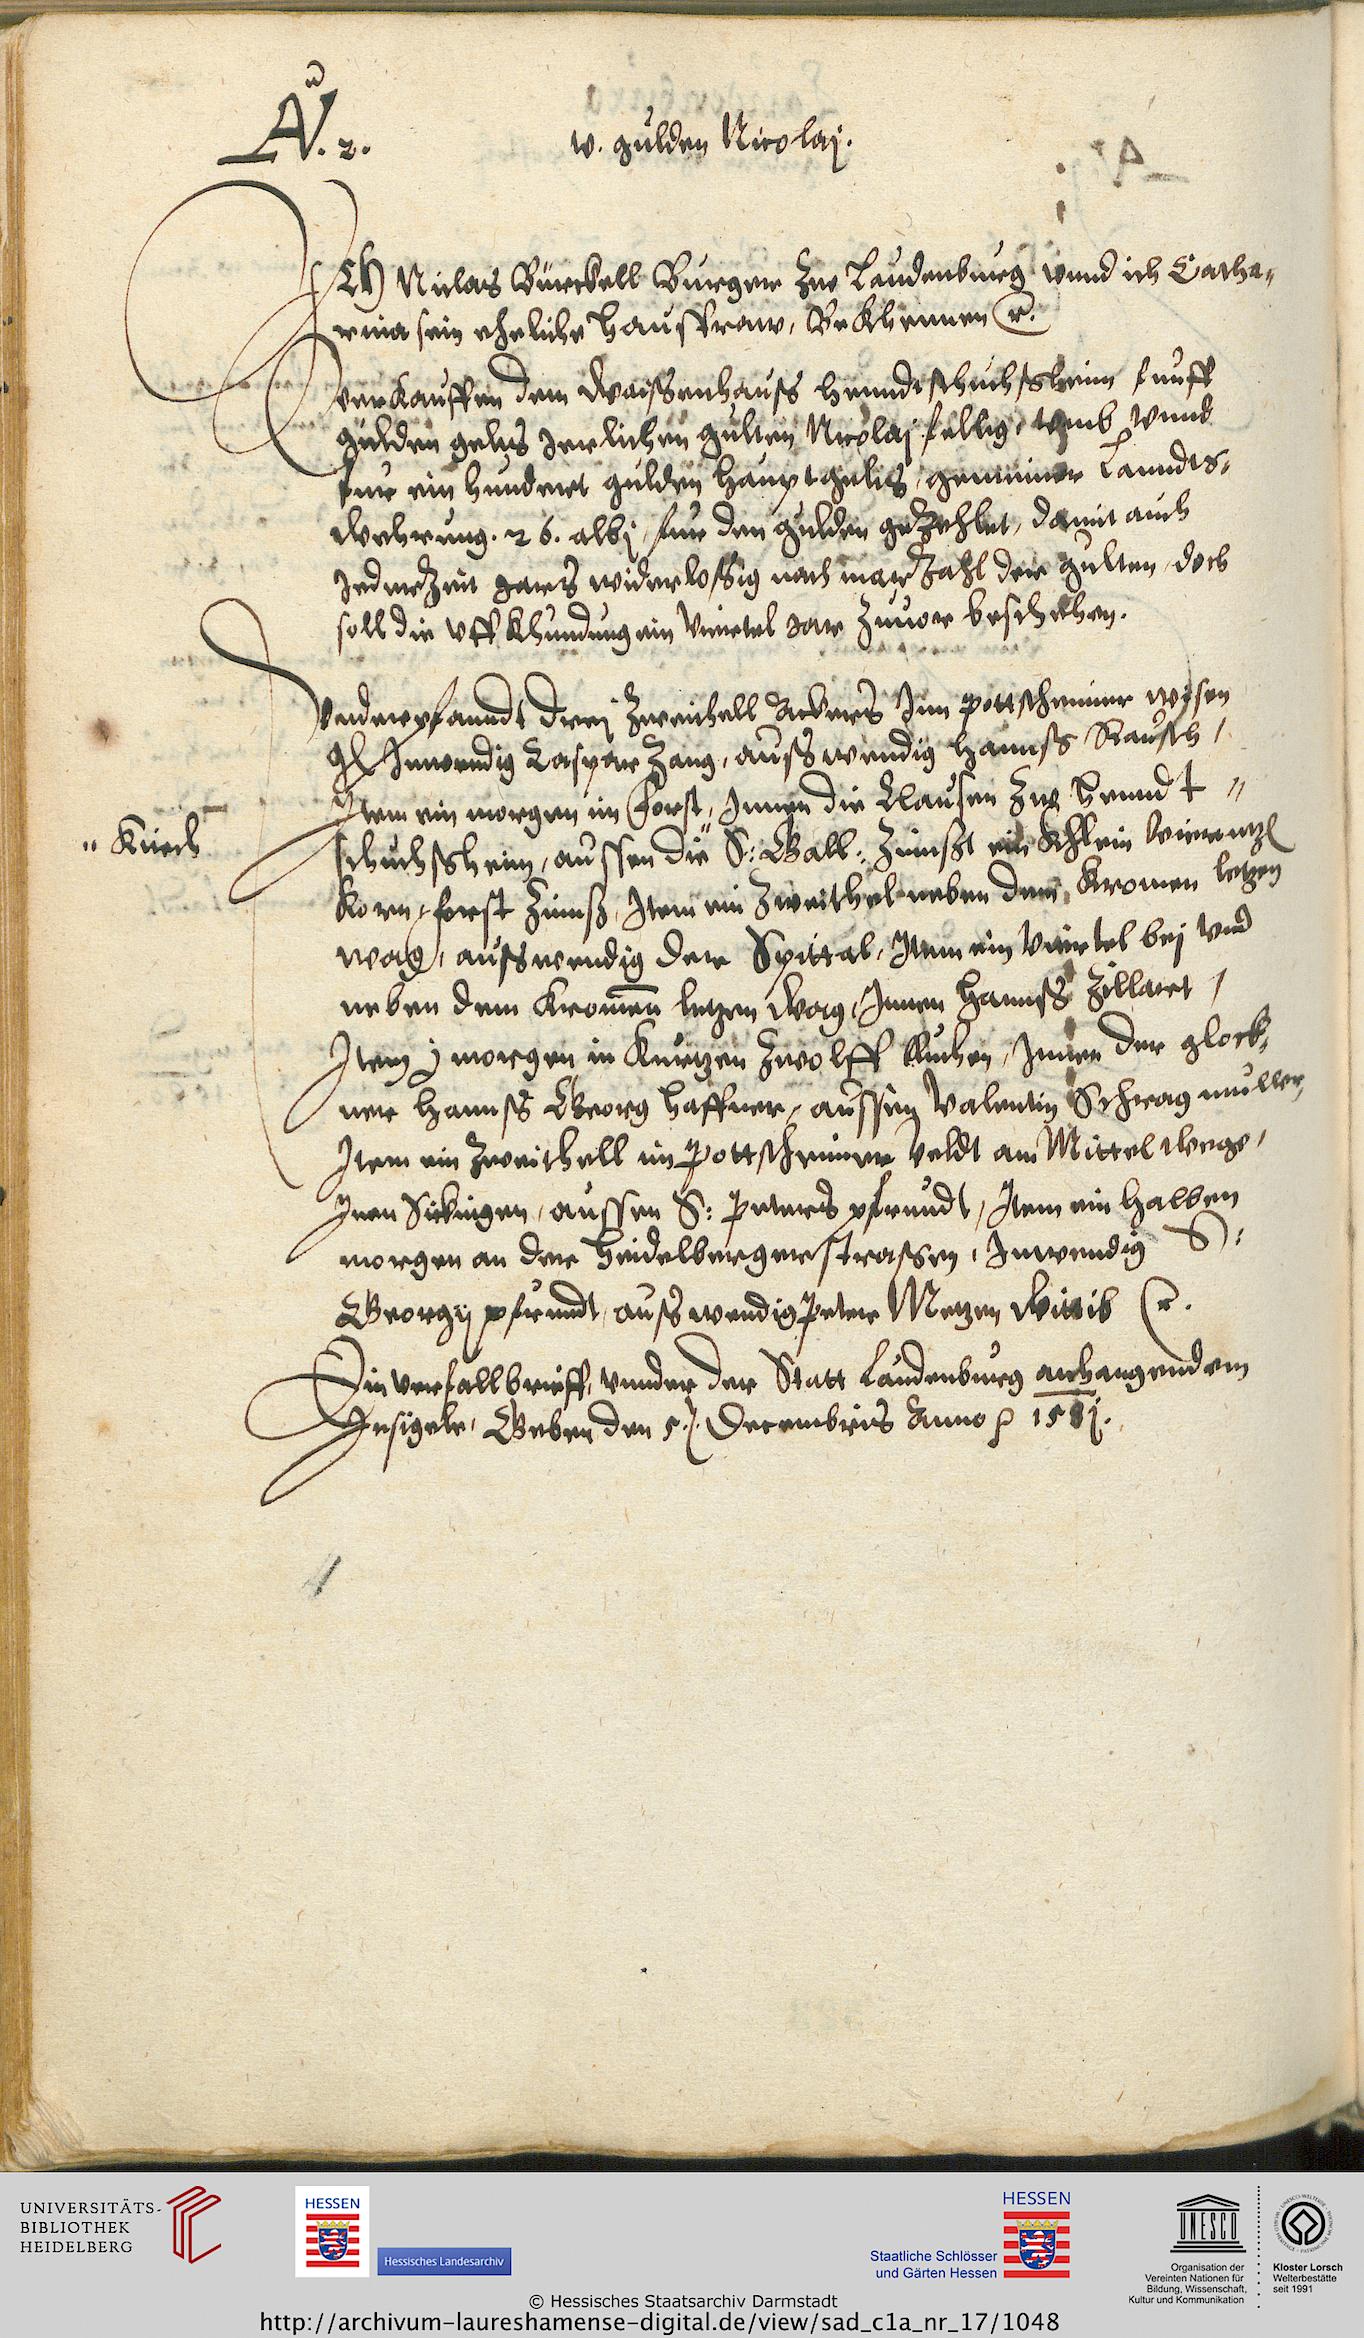 Aű. 2.
v. gulden Nicolaj.
Ich Niclas Bürckell Burger zur Laudenburg vnnd ich Catha-
rina sein eheliche haussfraw, Bekhennen etc.
verkauffen dem Waissenhauss henndtschuchssheim funff
gulden gelts Jerlichen gulten Nicolaj fellig, vmb vnnd
fur ein hundert gulden hauptgelts, gemeiner Lanndts-
wehrung. 26. albj, fur den gulden gezehlet, damit auch
Jederzeit gants widerlossig nach marzahl der gulten, doch
soll die vffkhundung ein Viertel Jar zuuor beschehen.
Vnderpfanndt drej Zweithell Ackers Jnn pottschemer wisen
Jnwendig Caspar Zang, ausswendig Hannss Rausch,
Jtem ein morgen im forst, Jnnen die Clausen zue henndt
schuchssheim, aussen die S: Gall: zinnsst ein khlein viernzl
" Kirch
korn, forst Zinnss, Jtem ein Zweithel neben dem kromen letzen
wag, ausswendig der Spittal, Jtem ein Viertel bej vnd
neben dem kromen letzen wag, Jnnen Hannss Zillart,
Jtem j morgen in kurtzen Zwolff Ruthen, Jnnen der glock-
ner Hannss Georg haffner, aussen Valentin Schragmuller,
Jtem ein Zweithell im Pottschemer veldt am Mittelwege,
Jnen Sickingen, aussen S: Peters pfrundt, Jtem ein halben
morgen an der Heidelbergerstrassen, Jnwendig S:
Georgij pfrundt, ausswendig Peter Metzen Wittib etc.
Ein versallbrieff, vnnder der Statt Laudenburg anhangendem
Jnsigele, Geben den 5. Decembris Anno 1581.
UNIVERSITÄTS-
BIBLIOTHEK
HEIDELBERG
HESSEN
Hessisches Landesarchiv
HESSEN
Staatliche Schlösser
und Gärten Hessen
UNESCO
Organisation der
Vereinten Nationen für
Bildung, Wissenschaft,
Kultur und Kommunikation
Kloster Lorsch
Welterbestätte
seit 1991
© Hessisches Staatsarchiv Darmstadt
http://archivum-laureshamense-digital.de/view/sad_c1a_nr_17/1048